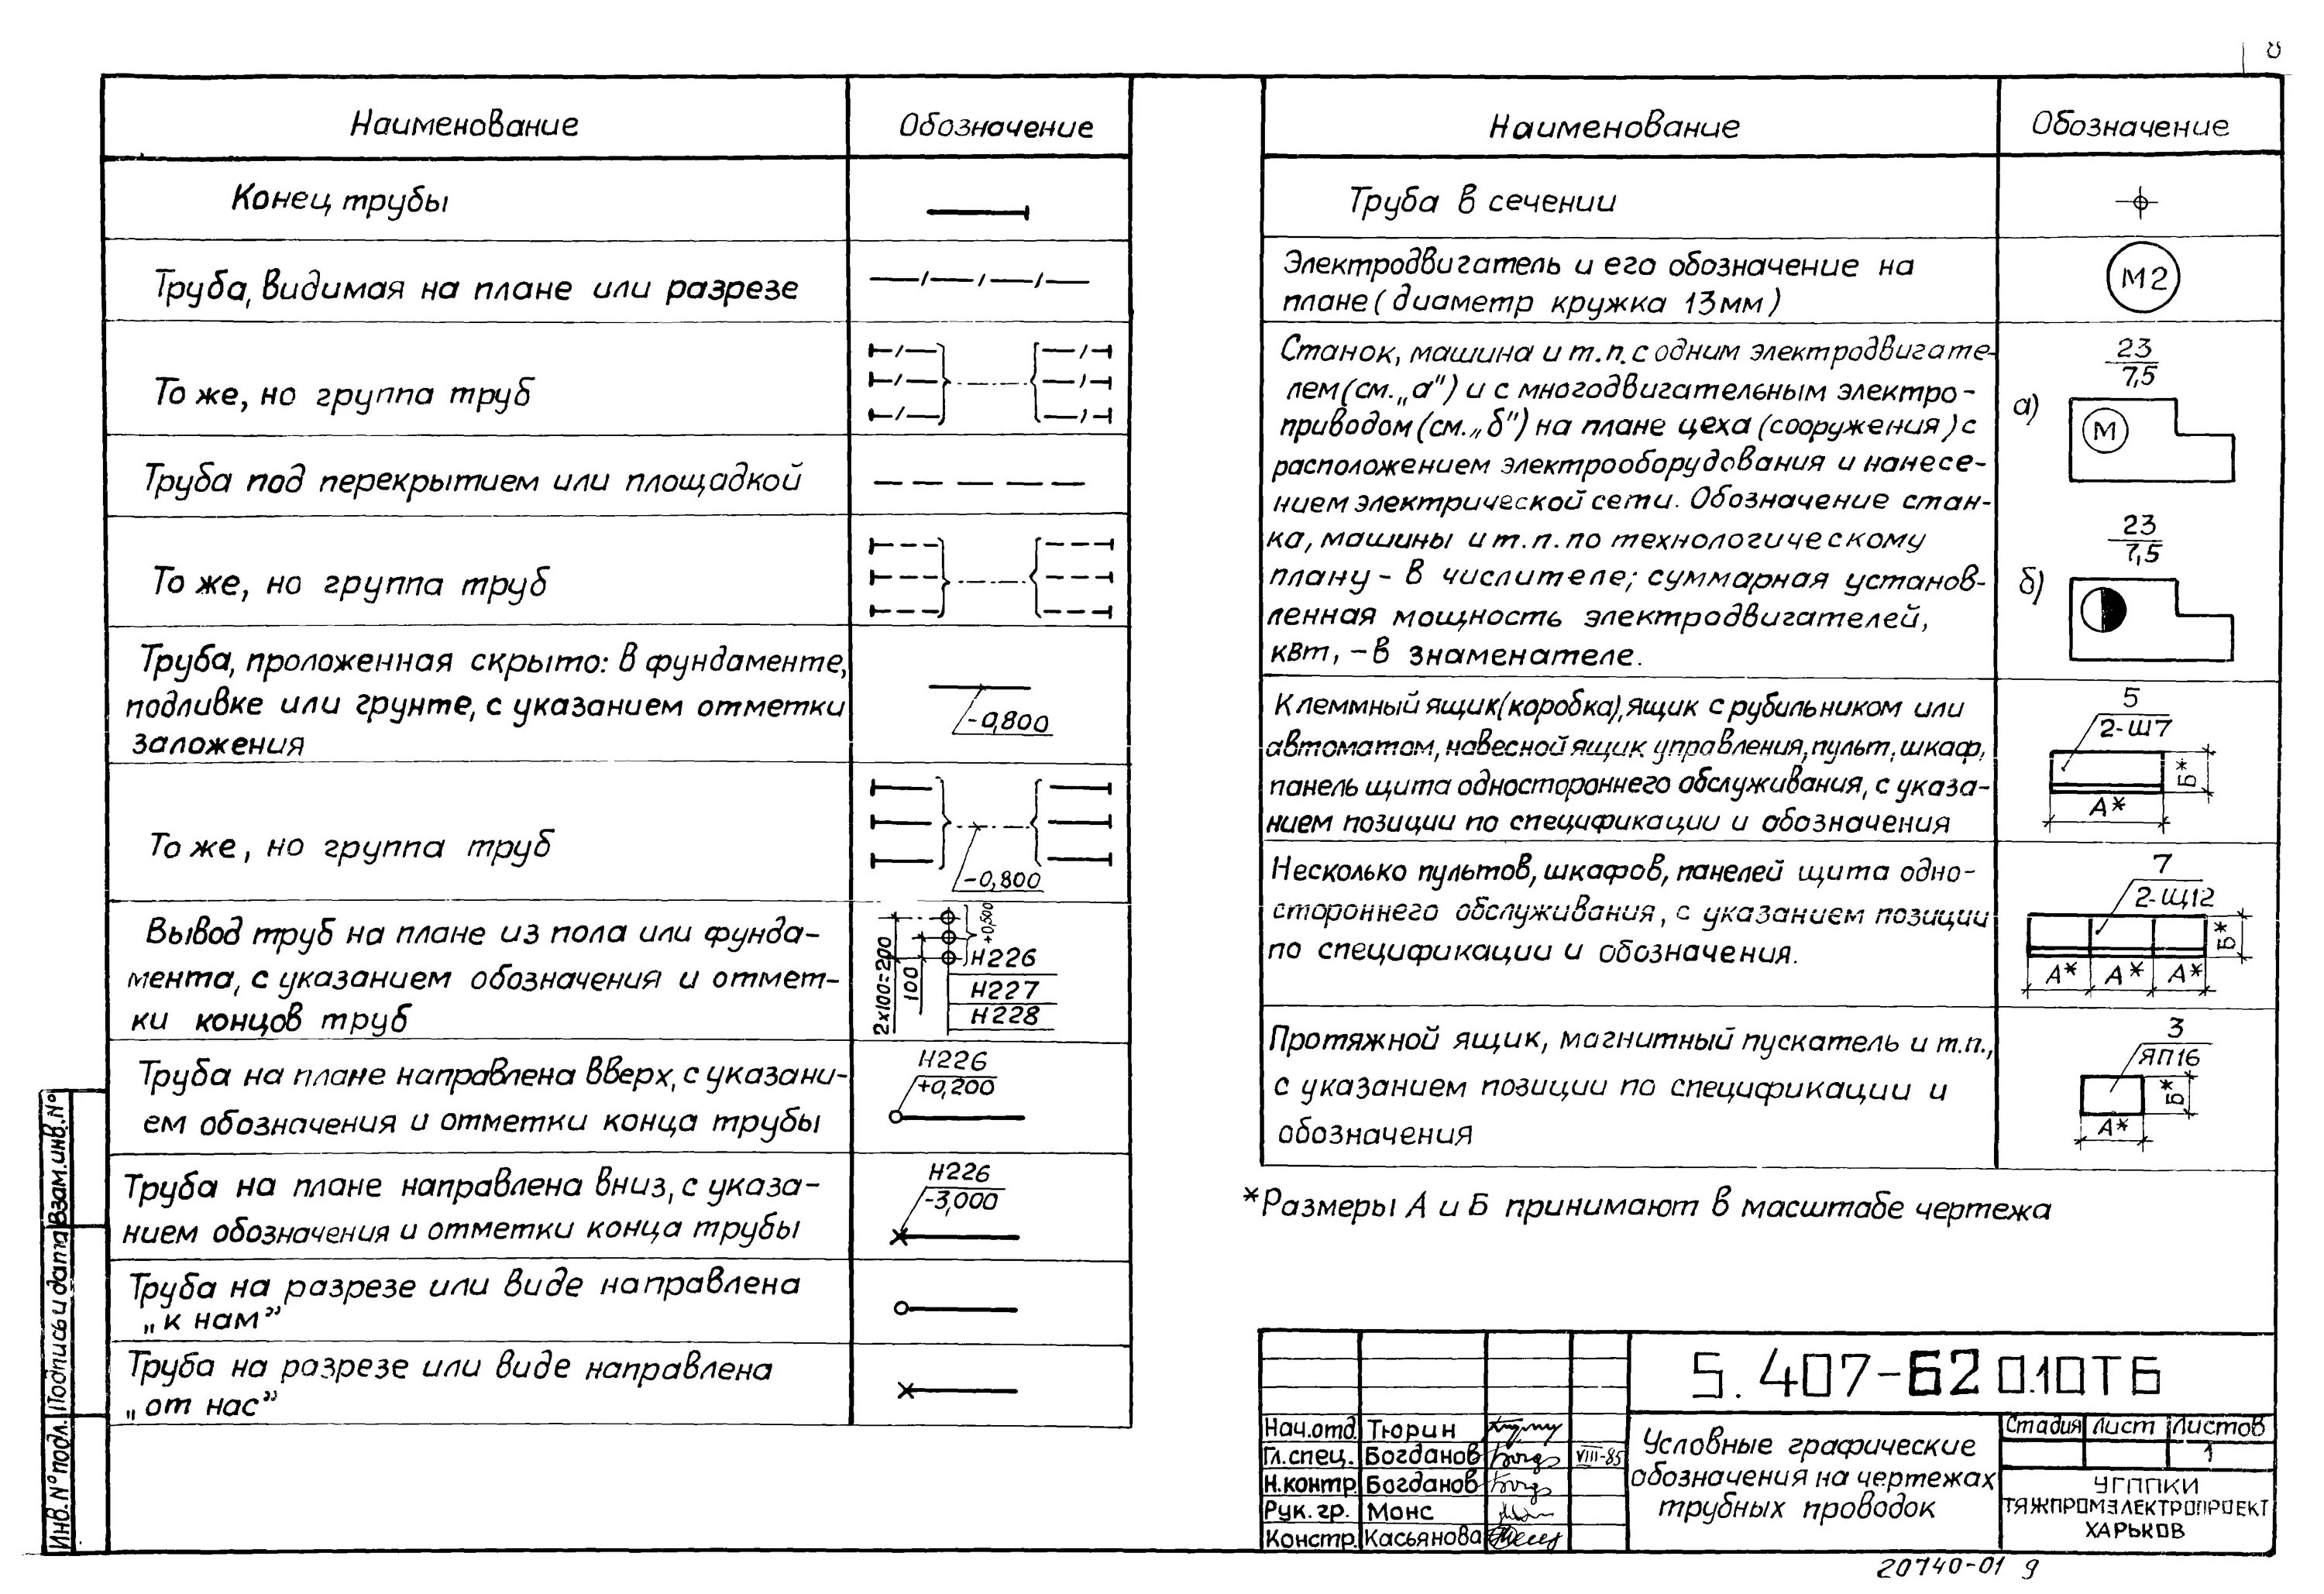 8
Наименование
Обозначение
Конец трубы
Труба, видимая на плане или разрезе
То же, но группа труб
Труба под перекрытием или площадкой
То же, но группа труб
Труба, проложенная скрыто: в фундаменте,
подливке или грунте, с указанием отметки
заложения
-0,800
То же, но группа труб
-0,800
Вывод труб на плане из пола или фунда-
мента, с указанием обозначения и отмет-
ки концов труб
2х100=200
100
+0,500
Н226
Н227
Н228
Труба на плане направлена вверх, с указани-
ем обозначения и отметки конца трубы
Н226
+0,200
Труба на плане направлена вниз, с указа-
нием обозначения и отметки конца трубы
Н226
-3,000
Труба на разрезе или виде направлена
„к нам”
Труба на разрезе или виде направлена
„от нас”
Наименование
Обозначение
Труба в сечении
Электродвигатель и его обозначение на
плане (диаметр кружка 13мм)
М2
Станок, машина и т.п. с одним электродвигате-
лем (см. „а") и с многодвигательным электро-
приводом (см. „б") на плане цеха (сооружения) с
расположением электрооборудования и нанесе-
нием электрической сети. Обозначение стан-
ка, машины и т.п. по технологическому
плану - в числителе; суммарная установ-
ленная мощность электродвигателей,
квт, - в знаменателе.
а)
23
7,5
М
б)
23
7,5
Клеммный ящик (коробка), ящик с рубильником или
автоматом, навесной ящик управления, пульт, шкаф,
панель щита одностороннего обслуживания, с указа-
нием позиции по спецификации и обозначения
5
2-Ш7
Б*
А*
Несколько пультов, шкафов, панелей щита одно-
стороннего обслуживания, с указанием позиции
по спецификации и обозначения.
7
2-Щ12
Б*
А* А* А*
Протяжной ящик, магнитный пускатель и т.п.,
с указанием позиции по спецификации и
обозначения
3
ЯП16
Б*
А*
*Размеры А и Б принимают в масштабе чертежа
Взам.инв.№
Подпись и дата
Инв.№ подл.
5.407-62 0.10ТБ
Нач.отд. Тюрин
Гл.спец. Богданов VIII-85
Н.контр. Богданов
Рук. гр. Монс
Констр. Касьянова
Условные графические
обозначения на чертежах
трубных проводок
Стадия Лист Листов
1
УГППКИ
ТЯЖПРОМЭЛЕКТРОПРОЕКТ
ХАРЬКОВ
20740-01 9